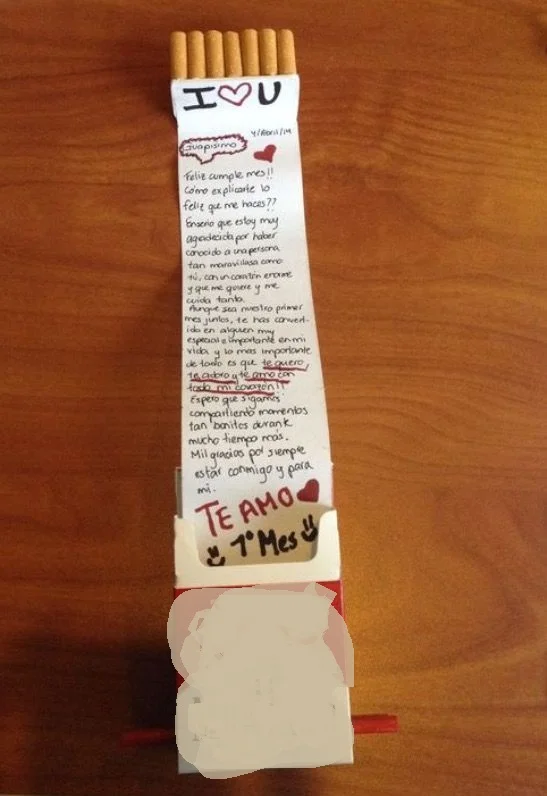 I ♡ U
4/Abril/14
Guapísimo
Feliz cumple mes!!
Cómo explicarte lo
feliz que me haces??
Enserio que estoy muy
agradecida por haber
conocido a una persona
tan maravillosa como
tú, con un corazón enorme
y que me quiere y me
cuida tanto.
Aunque sea nuestro primer
mes juntos, te has convert-
ido en alguien muy
especial e importante en mi
vida y lo mas importante
de todo es que te quiero,
te adoro y te amo con
todo mi corazón!!
Espero que sigamos
compartiendo momentos
tan bonitos durante
mucho tiempo más.
Mil gracias por siempre
estar conmigo y para
mi.
TE AMO
1° Mes